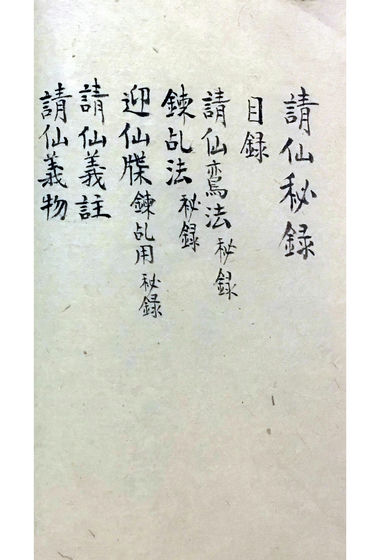 請仙秘録
目録
請仙鸞法秘録
鍊乩法秘録
迎仙牒鍊乩用秘録
請仙義註
請仙義物